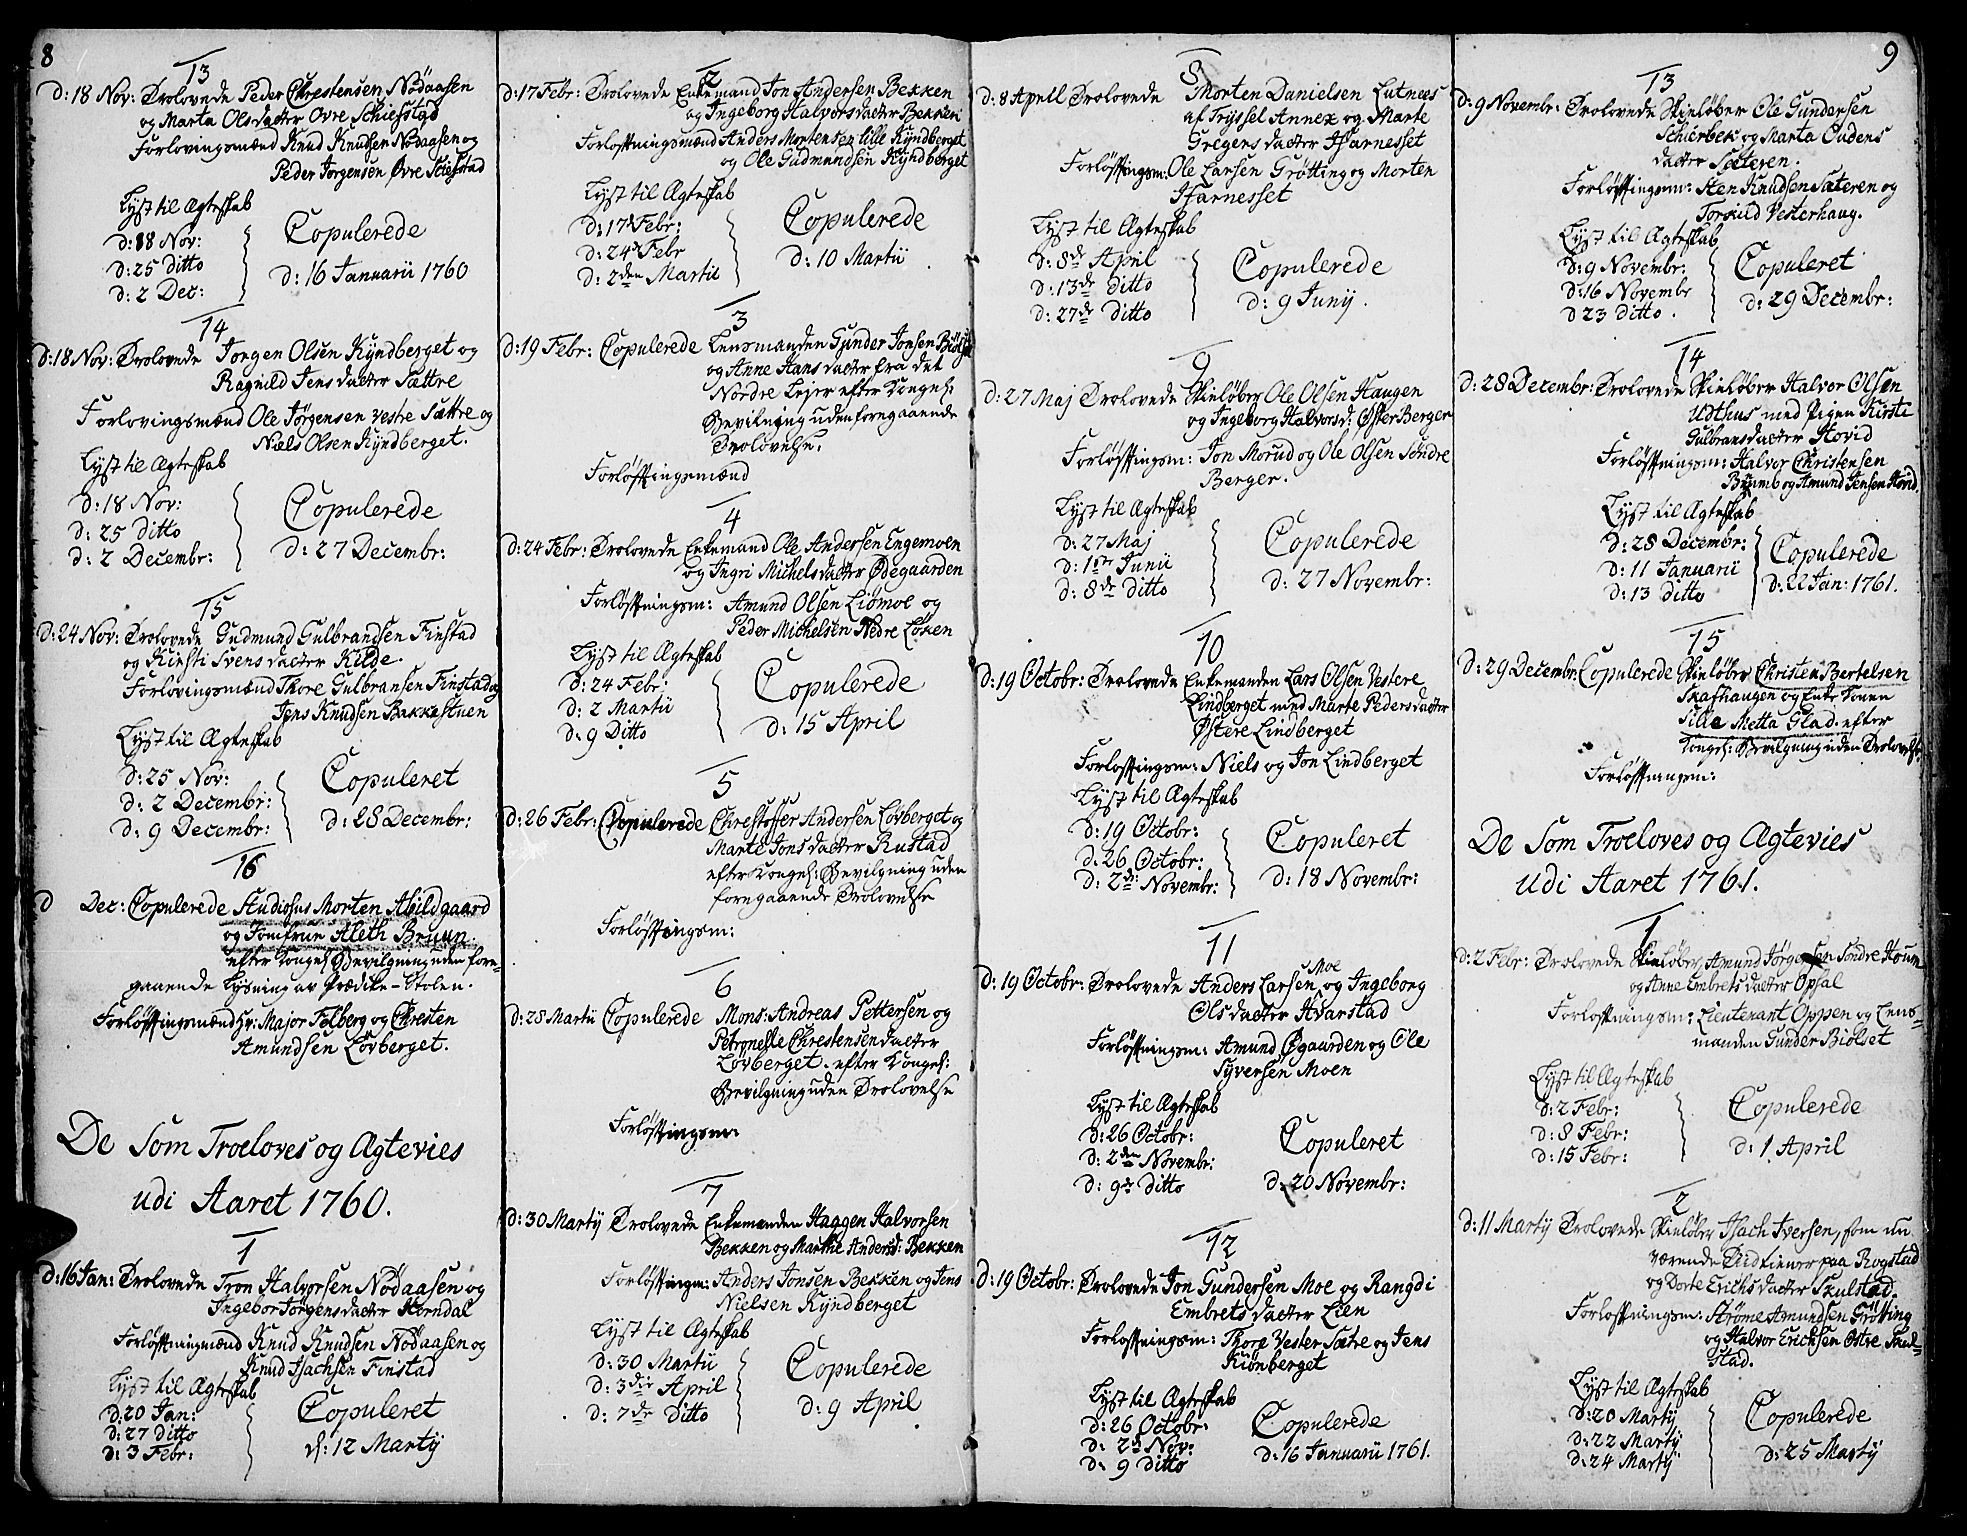 8
13
D: 18 Nov: Trolovede Peder Chrestensen Nödaasen
og Marta Olsdatter Ovre Schiefstad
Forlovingsmænd Knud Knudsen Nödaasen og
Peder Jorgensen Øvre Schefstad
Lyst til Ægteskab
D: 18 Nov:
D: 25 Ditto
D: 2 Dec:
Copulerede
D: 16 Januarii 1760
14
D: 18 Nov: Trolovede Jorgen Olsen Kyndberget og
Ragnild Jensdatter Sættre
Forlovingsmænd Ole Jörgensen vestre Sættre og
Niels Olsen Kyndberget.
Lyst til Ægteskab
D: 18 Nov:
D: 25 Ditto
D: 2 Decembr:
Copulerede
D: 27 Decembr:
15
D: 24 Nov: Trolovede Gudmund Gulbrandsen Finstad
og Kirsti Svensdatter Kilde.
Forlovingsmænd Thore Gulbransen Finstad og
Jens Knudsen Bakkestuen
Lyst til Ægteskab
D: 25 Nov:
D: 2 Decembr:
D: 9 Decembr:
Copuleret
D: 28 Decembr:
16
D Dec: Copulerede Studiosus Morten Abildgaard
og Jomfrue Aleth Bruun
efter Kongel: Bevilgning uden fore-
gaaende Lysning av Prædike-Stolen.
Forløftingsmænd Hr: Major Felberg og Chresten
Amundsen Lövberget.
De Som Troeloves og Ægtevies
udi Aaret 1760.
1
D: 16 Jan: Trolovede Tron Halvorsen Nödaasen og
Ingebor Jörgensdatter Horndal
Forløftningmænd Knud Knudsen Nödaasen og
Knud Isachsen Finstad
Lyst til Ægteskab
D: 20 Jan:
D: 27 ditto
D: 3 Febr:
Copuleret
d: 12 Martÿ
2
D: 17 Febr: Trolovede Enkemand Jon Andersen Bekken
og Ingeborg Halvorsdatter Bekken
Forløftningsmænd Anders Mortensen lille Kyndberget
og Ole Gudmundsen Kyndberget
Lyst til Ægteskab
D: 17 Febr:
D: 24 Febr
D: 2den Martii
Copulerede
D: 10 Martii
3
D: 19 Febr: Copulerede Lensmanden Gunder Jonsen Biölset
og Anne Hansdatter fra det
Nordre Lejer efter Kongel:
Bevilning uden foregaaende
Trolovelse.
Forløftingsmænd
4
D: 24 Febr: Trolovede Enkemand Ole Andersen Engemoen
og Ingri Michelsdatter Ødegaarden
Forløftningsm: Amund Olsen Liömoe og
Peder Michelsen Nedre Løken
Lyst til Ægteskab
D: 24 Febr:
D: 2 Martii
D: 9 Ditto
Copulerede
D: 15 April
5
D: 26 Febr: Copulerede Chrestoffer Andersen Lövberget og
Marte Jonsdatter Rustad
efter Kongel: Bevilgning uden
foregaaende Trolovelse
Forløftingsm:
6
D: 28 Martii Copulerede Mons: Andreas Pettersen og
Petronelle Chrestensendatter
Lövberget. efter Kongel:
Bevilgning uden Trolovelse
Forløftingsm:
7
D: 30 Martÿ Trolovede Enkemanden Haggen Halvorsen
Bekken og Marthe Andersd: Bekken
Forløftingsm: Anders Jonsen Bekken og Jens
Nielsen Kyndberget
Lyst til Ægteskab
D: 30 Martii
D: 3die April
D: 7de Ditto
Copulerede
D: 9 April
8
D: 8 Aprill Trolovede Morten Danielsen Lutnees
af Tryssel Annex og Marte
Gregersdatter Harnesset
Forløftingsm: Ole Larsen Gröttingog Morten
Harnesset
Lyst til Ægteskab
D: 8de April
D: 13de Ditto
D: 27de Ditto
Copulerede
D: 9 Junÿ.
9
D: 27 Maj Trolovede Skieløber Ole Olsen Haugen
og Ingeborg Halvorsd: Øster Berger
Forløftingsm: Jon Morud og Ole Olsen Söndre
Berger.
Lyst til Ægteskab
D: 27 Maj
D: 1ste Junii
D: 8de Ditto
Copulerede
D: 27 Novembr:
10
D: 19 Octobr: Trolovede Enkemanden Lars Olsen Vestere
Lindberget med Marte Pedersdatter
Østere Lindberget
Forløftingsm: Niels og Jon Lindberget
Lyst til Ægteskab
D: 19 Octobr:
D: 26 Octobr:
D: 2de Novembr:
Copuleret
D: 18 Novembr:
11
D: 19 Octobr: Trolovede Anders Larsen Moe og Ingeborg
Olsdatter Hvarstad
Forløftningsm: Amund Øgaarden og Ole
Syversen Moen
Lyst til Ægteskab
D: 26 Octobr:
D: 2den Novembr:
D: 9de Ditto
Copuleret
D: 20 Novembr:
12
D: 19 Octobr: Trolovede Jon Gundersen Moe og Rangdi
Embretsdatter Lien
Forloftningsm: Thore Vester Sætre og Jens
Kiönberget
Lyst til Ægteskab
D: 26 Octobr:
D: 2d Nov:
D: 9 Ditto
Copulerede
D: 16 Januarii 1761.
9
13
D: 9 Novembr: Trolovede Skieløber Ole Gundersen
Schierbek og Marta Oudens
datter Sæteren.
Forløftingsm: Sten Knudsen Sæteren og
Torkild Vesterhaug.
Lyst til Ægteskab
D: 9 Novembr:
D: 16 Novembr
D 23 Ditto.
Copuleret
D: 29 Decembr:
14
D: 28 Decembr: Trolovede Skieløber Halvor Olsen
Udthus med Pigen Kirsti
Gulbransdatter Hovid
Forløftningsm: Halvor Christensen
og Amund Jensen Hovid
Lyst til Ægteskab
D: 28 Decembr:
D: 11 Januarii
D: 13 Ditto
Copulerede
D: 22 Jan: 1761.
15
D: 29 Decembr: Copulerede Skieløber Christen Bertelsen
Skafhaugen og Enke Konen
Sille Metta Glad. efter
Kongel: Bevilgning uden Trolovelse.
Forløftningsm:
De Som Troeloves og Ægtevies
udi Aaret 1761.
1
D: 2 Febr: Trolovede Skieløber Amund Jörgensen Söndre Houm
og Anne Embretsdatter Opsal
Forløftningsm: Lieutenant Oppen og Lens-
manden Gunder Biölset
Lyst til Ægteskab
D: 2 Febr:
D: 8 Febr:
D: 15 Febr:
Copulerede
D: 1 April
2
D: 11 Martÿ Trolovede Skieløber Isach Iversen, som nu
værende Tieniner paa Rogstad
og Dorte Erichsdatter Skulstad.
Forløftningsm: Strøme Amundsen Grötting
og Halvor Erichsen Østre Skul-
stad.
Lyst til Ægteskab
D: 20 Martÿ
D: 22 Martÿ
D: 24 Martÿ
Copulerede
D: 25 Martÿ